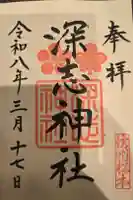 奉拝
深志神社
令和八年三月十七日